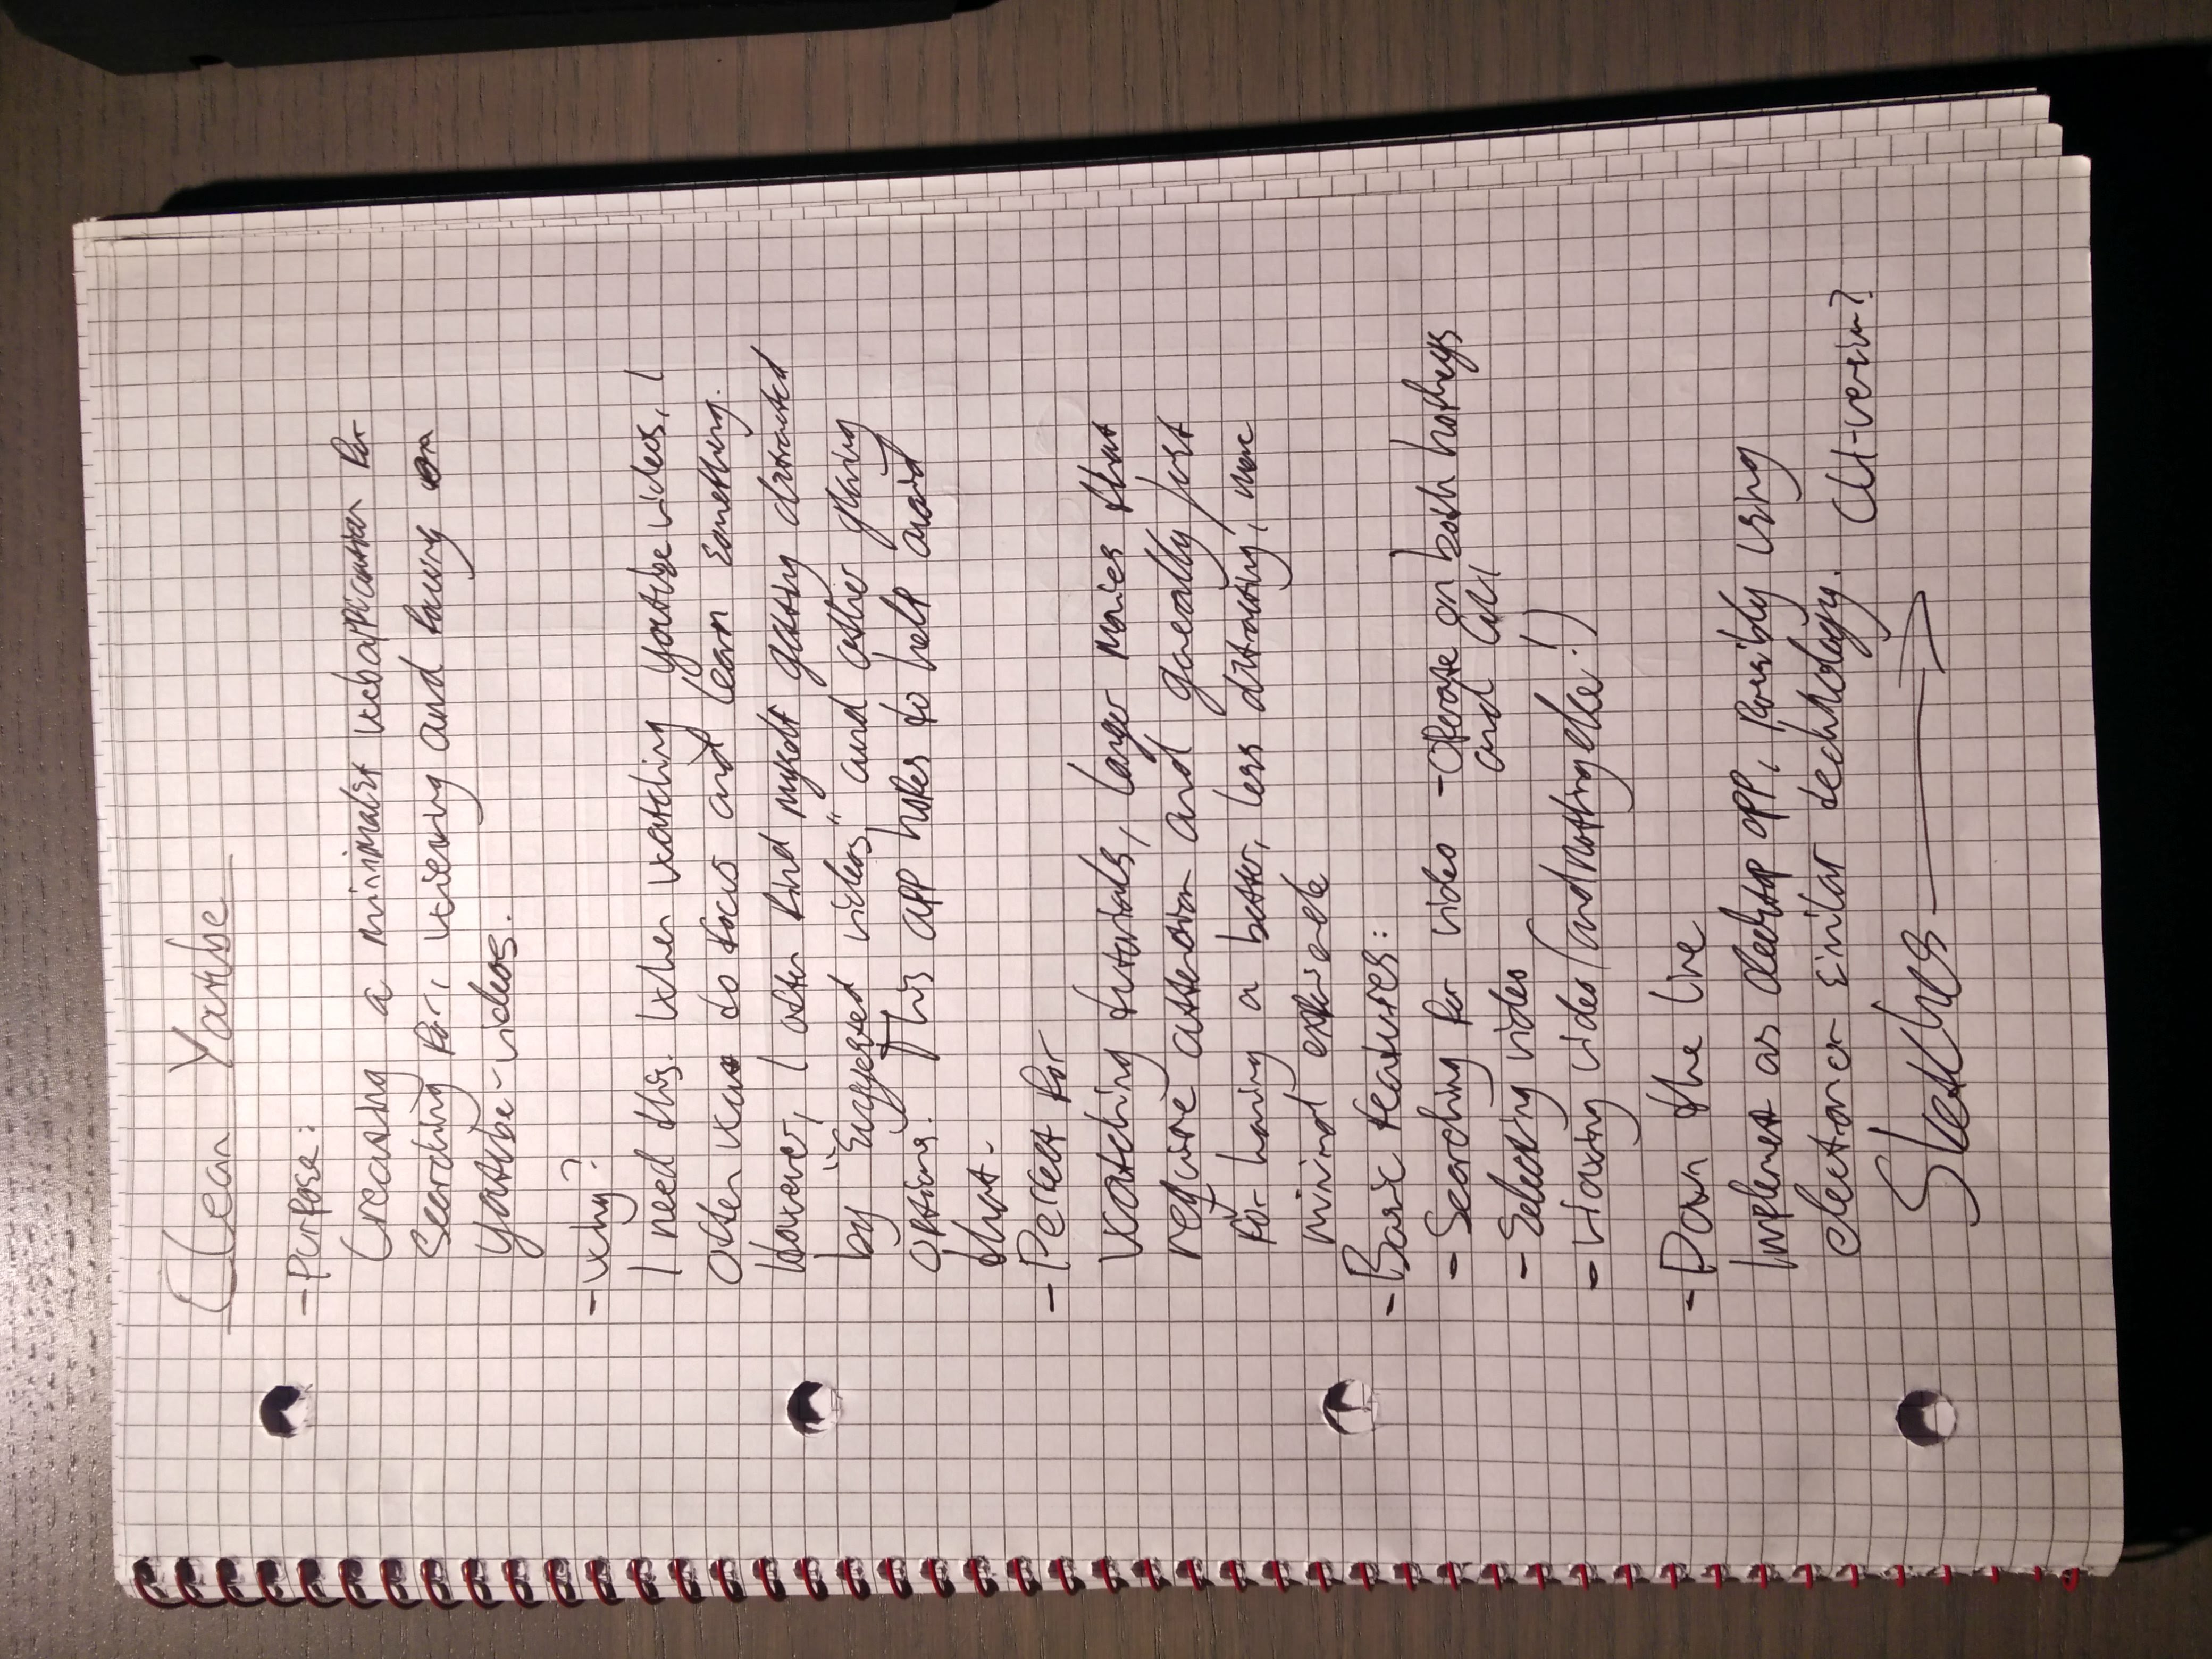 Clean Youtube
- Purpose:
Creating a minimalist webapplication for
searching for, viewing and having on
youtube-videos.
- Why?
I need this. When watching youtube videos, I
often want to focus and learn something.
However, I often find myself getting distracted
by "suggested videos" and other glaring
options. This app hopes to help avoid
that.
- Perfect for
Watching tutorials, larger movies that
require attention and generally just
for having a better, less distracting, more
minimal experience
- Basic features:
- Searching for video - Operate on both hotkeys
and GUI
- Selecting video
- Viewing video (and nothing else!)
- Down the line
Implement as desktop app, possibly using
electron or similar technology. CLI-version?
Sketches →